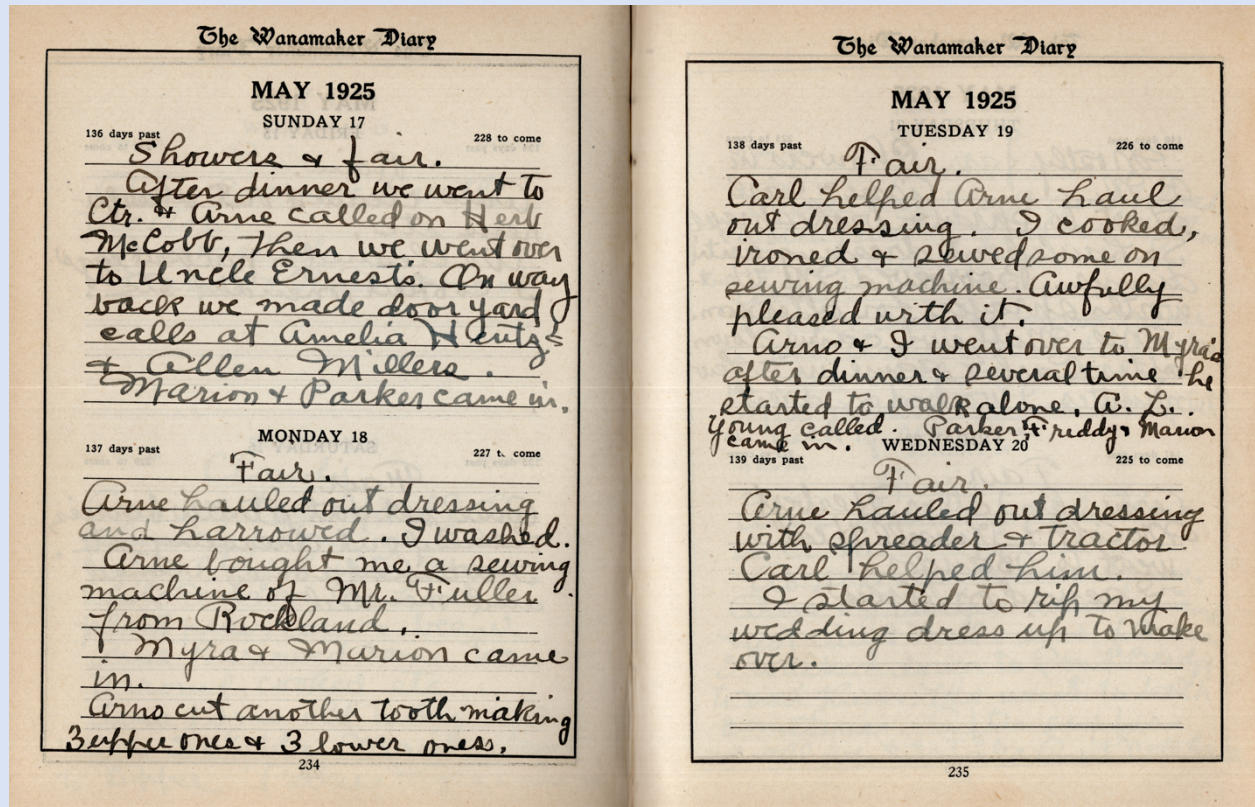 The Wanamaker Diary
MAY 1925
SUNDAY 17
136 days past 228 to come
Showers & fair.
After dinner we went to
Ctr. & Arne called on Herb
McCobb, then we went over
to Uncle Ernest's. On way
back we made door yard
calls at Amelia Hentz's
& Allen Millers.
Marion & Parker came in.
MONDAY 18
137 days past 227 t. come
Fair.
Arne hauled out dressing
and harrowed. I washed.
Arne bought me a sewing
machine of Mr. Fuller
from Rockland.
Myra & Marion came
in.
Arno cut another tooth making
3 upper ones & 3 lower ones.
234
The Wanamaker Diary
MAY 1925
TUESDAY 19
138 days past 226 to come
Fair.
Carl helped Arne haul
out dressing. I cooked,
ironed & sewed some on
sewing machine. Awfully
pleased with it.
Arno & I went over to Myra's
after dinner & several time he
started to walk alone. A. L.
Young called. Parker, Freddy & Marion
came in.
WEDNESDAY 20
139 days past 225 to come
Fair.
Arne hauled out dressing
with spreader & tractor
Carl helped him.
I started to rip my
wedding dress up to make
over.
235